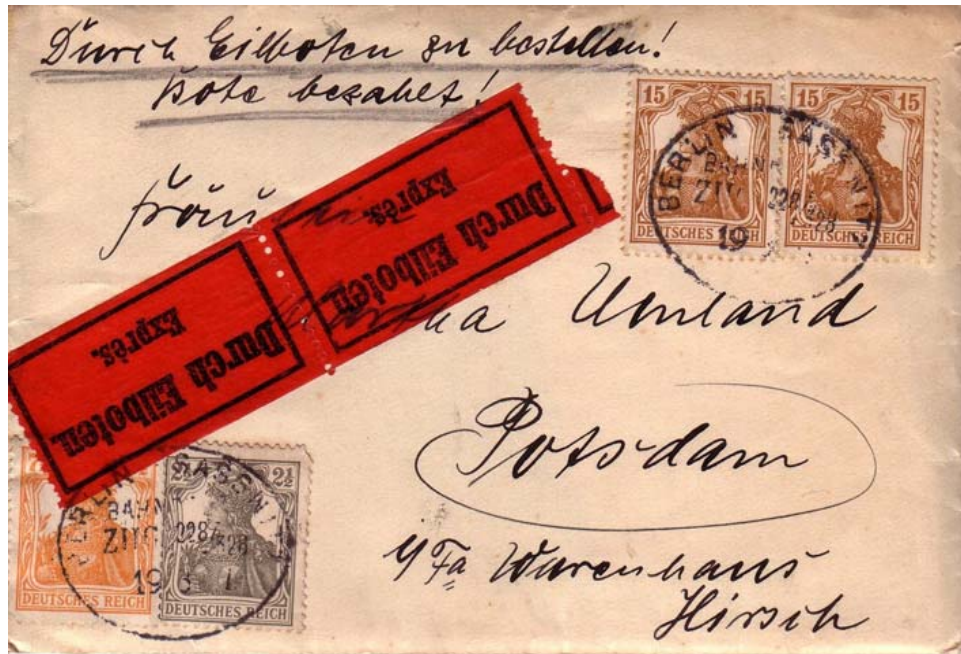 Durch Eilboten zu bestellen!
Bote bezahlt!
15 15 15 15
BERLIN
ZUG
19
DEUTSCHES REICH DEUTSCHES REICH
Fräulein
Durch Eilboten.
Exprès.
Durch Eilboten.
Exprès.
Martha Umland
Potsdam
Fa Warenhaus
Hirsch
2½ 2½
BERLIN
ZUG 228
19
DEUTSCHES REICH DEUTSCHES REICH